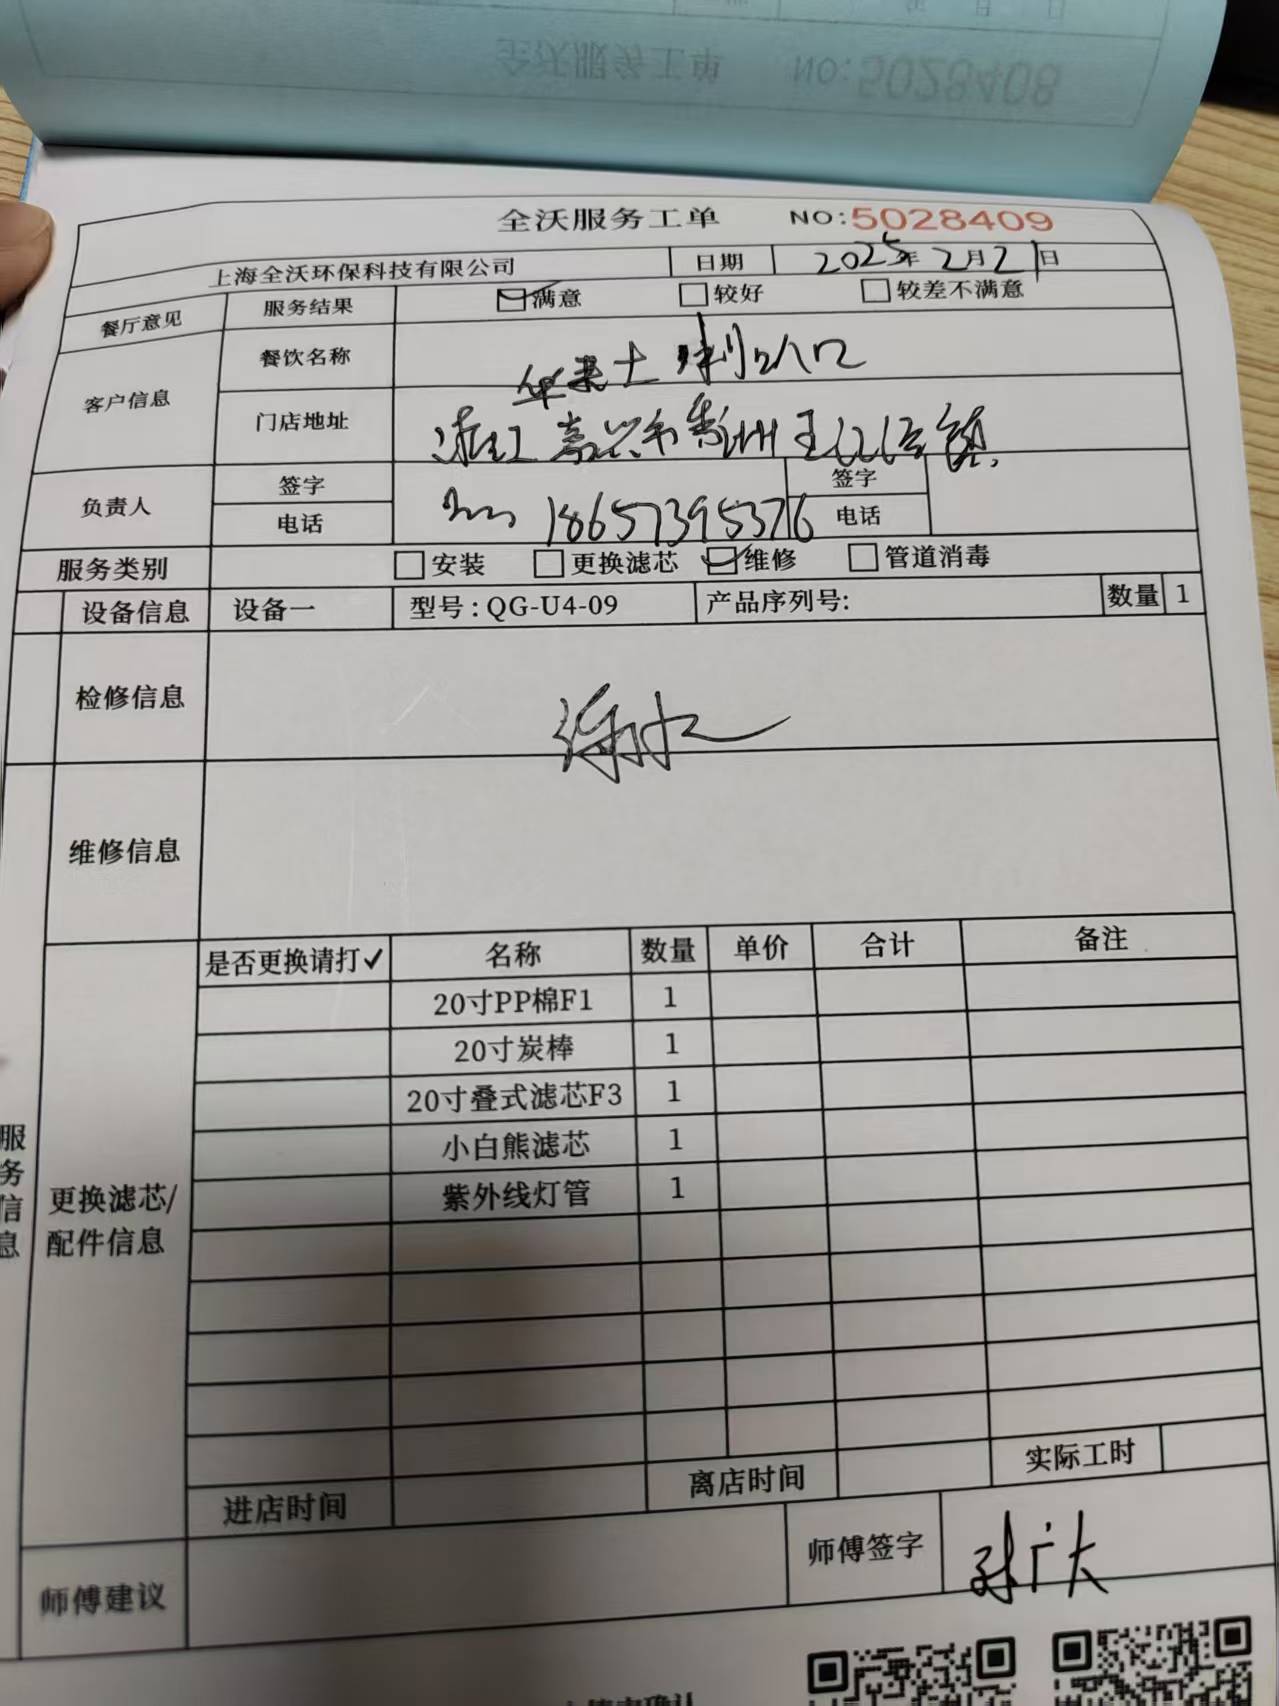 全沃服务工单 NO:5028408
全沃服务工单 NO:5028409
上海全沃环保科技有限公司 日期 2025年2月21日
餐厅意见 服务结果 满意 较好 较差不满意
客户信息 餐饮名称 华莱士
门店地址 浙江嘉兴市秀洲王江泾镇
负责人 签字 签字
电话 18657395376 电话
服务类别 安装 更换滤芯 维修 管道消毒
设备信息 设备一 型号:QG-U4-09 产品序列号: 数量 1
检修信息 漏水
维修信息
是否更换请打✓ 名称 数量 单价 合计 备注
20寸PP棉F1 1
20寸炭棒 1
20寸叠式滤芯F3 1
小白熊滤芯 1
紫外线灯管 1
服务信息
更换滤芯/
配件信息
进店时间 离店时间 实际工时
师傅建议 师傅签字 孙广大